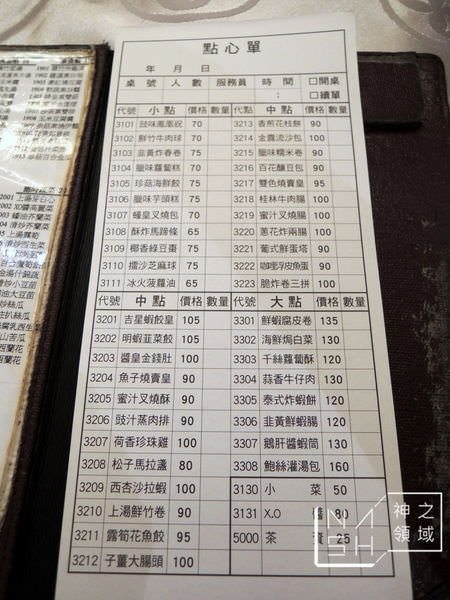 點心單
年 月 日
桌號 人數 服務員 時間 □開桌
: □續單
代號 小點 價格 數量 代號 中點 價格 數量
3101 豉味鳳凰祝 70 3213 香煎花枝餅 90
3102 鮮竹牛肉球 70 3214 金露流沙包 100
3103 韭黃炸春卷 75 3215 臘味糯米卷 90
3104 臘味蘿蔔糕 70 3216 百花釀豆包 90
3105 珍菇海鮮餃 75 3217 雙色燒賣皇 95
3106 臘味芋頭糕 75 3218 桂林牛肉腸 100
3107 蠔皇叉燒包 70 3219 蜜汁叉燒腸 100
3108 酥炸馬蹄條 65 3220 蔥花炸兩腸 100
3109 椰香綠豆棗 75 3221 葡式鮮蛋塔 90
3110 擂沙芝麻球 75 3222 咖哩浮皮魚蛋 90
3111 冰火菠蘿油 65 3223 脆炸卷三拼 100
代號 中點 價格 數量 代號 大點 價格 數量
3201 吉星蝦餃皇 105 3301 鮮蝦腐皮卷 135
3202 明蝦韮菜餃 105 3302 海鮮焗白菜 130
3203 醬皇金錢肚 100 3303 千絲蘿蔔酥 120
3204 魚子燒賣皇 90 3304 蒜香牛仔肉 130
3205 蜜汁叉燒酥 90 3305 泰式炸蝦餅 120
3206 豉汁蒸肉排 90 3306 韭黃鮮蝦腸 120
3207 荷香珍珠雞 100 3307 鵝肝醬蝦筒 130
3208 松子馬拉盞 80 3308 鮑絲灌湯包 160
3209 西杏沙拉蝦 100 3130 小菜 50
3210 上湯鮮竹卷 90 3131 X.O 醬 80
3211 露筍花魚餃 95 5000 茶資 25
3212 子薑大腸頭 100
神之領域